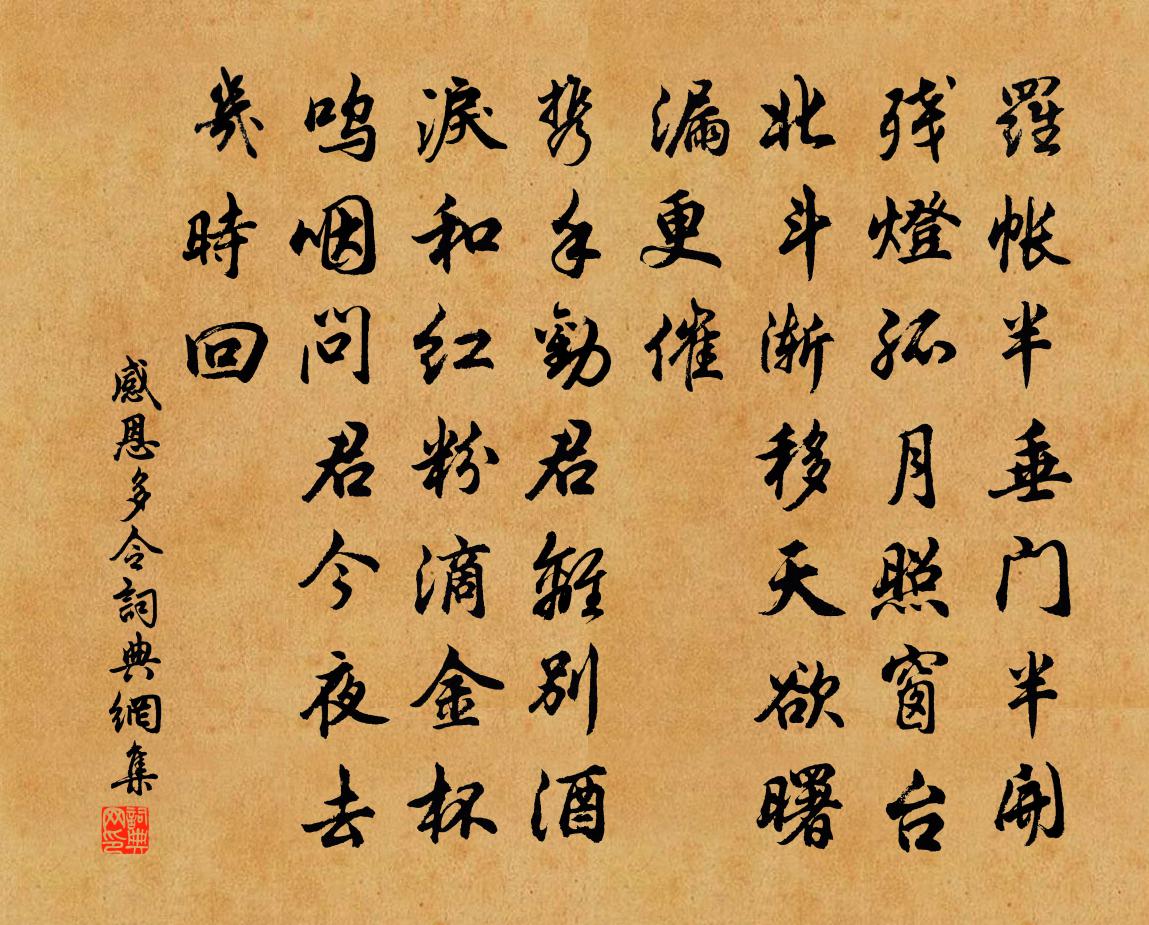 羅帳半垂门半開
残燈孤月照窗台
北斗渐移天欲曙
漏更催
携手勸君離別酒
淚和红粉滴金杯
呜咽问君今夜去
幾時回
感恩多令詞典網集
詞典网印